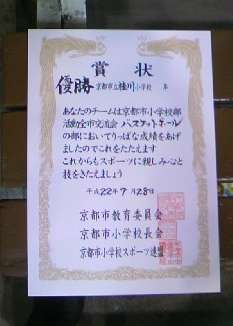 賞状
優勝 京都市立桂川小学校 殿
あなたのチームは京都市小学校部
活動全市交流会 バスケットボール
の部においてりっぱな成績をあげ
ましたのでこれをたたえます
これからもスポーツに親しみ心と
技をきたえましょう
平成22年7月28日
京都市教育委員会
京都市小学校長会
京都市小学校スポーツ連盟